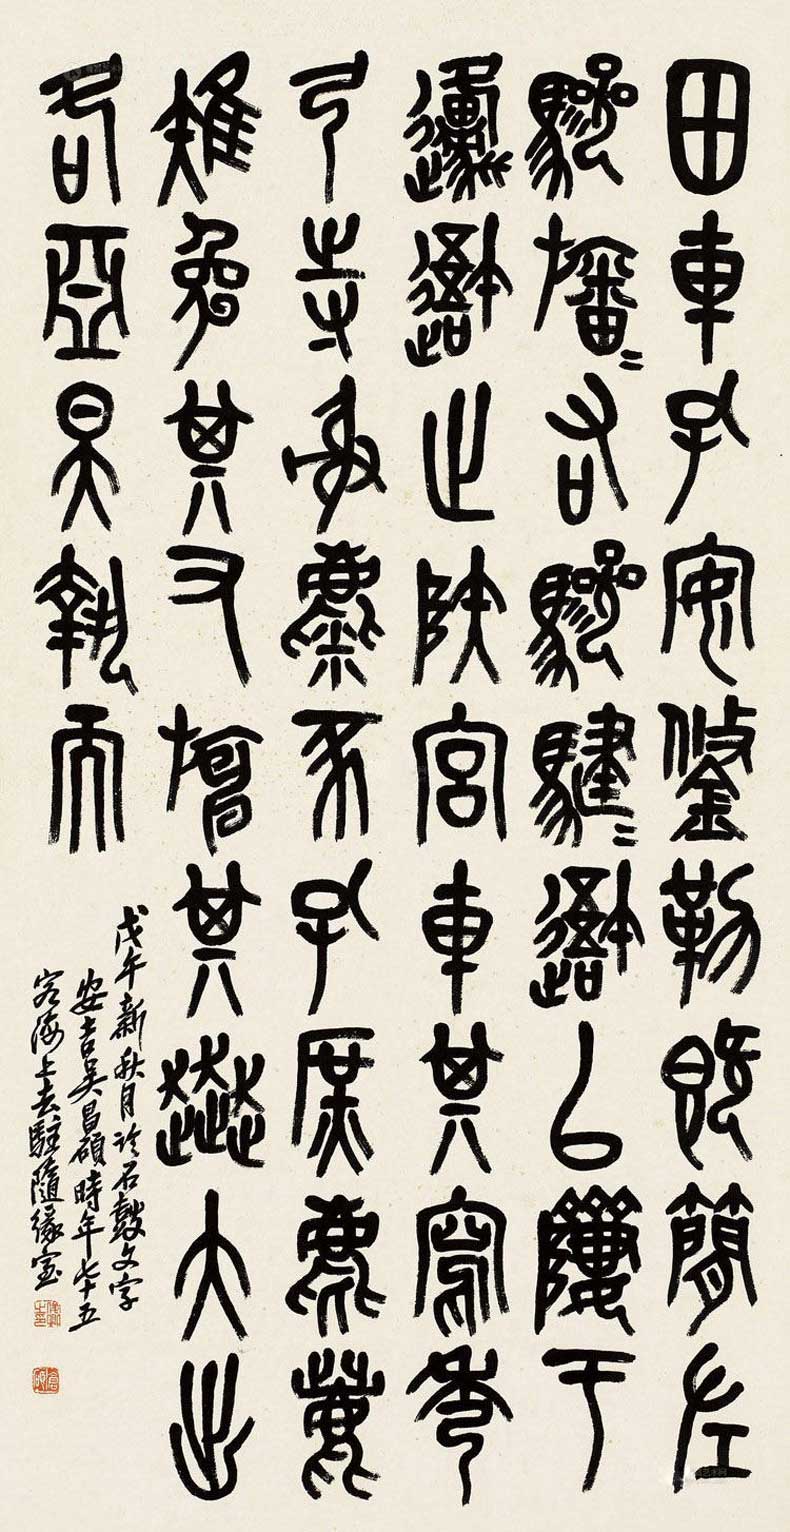 田車孔安鋚勒既簡左
驂旛〻右驂騝〻吾以隮于
邍吾止陜宮車其寫秀
弓寺射麋豕孔庶麀鹿
雉兔其又旃其奔大出
各亞昊執而
戊午新秋月臨石鼓文字
安吉吳昌碩時年七十五
客海上去駐隨緣室